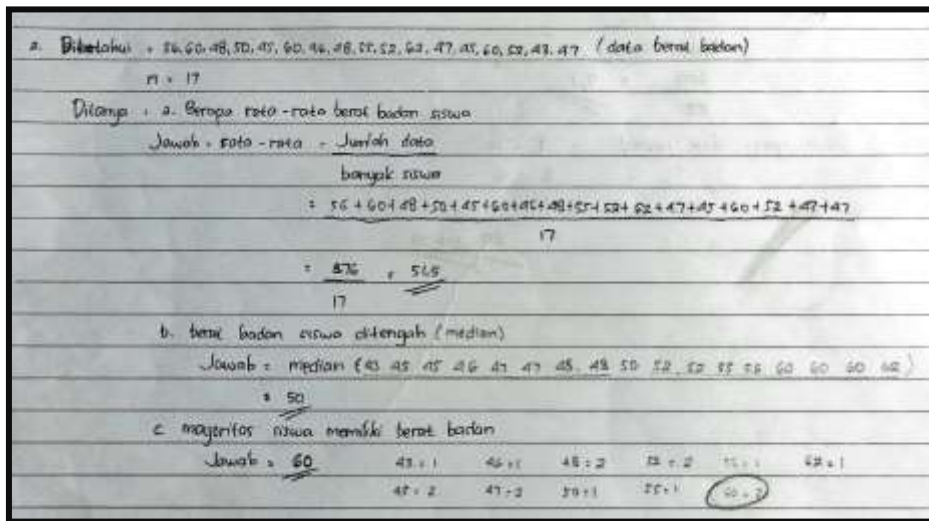 2. Diketahui : 56, 60, 48, 50, 45, 60, 46, 48, 55, 52, 62, 47, 45, 60, 52, 43, 47 (data berat badan)
n = 17
Ditanya : a. Berapa rata-rata berat badan siswa
Jawab = rata-rata = Jumlah data
banyak siswa
= 56 + 60 + 48 + 50 + 45 + 60 + 46 + 48 + 55 + 52 + 62 + 47 + 45 + 60 + 52 + 43 + 47
17
= 876 = 51,5
17
b. berat badan siswa ditengah (median)
Jawab = median (43 45 45 46 47 47 48, 48 50 52, 52 55 56 60 60 60 62)
= 50
c mayoritas siswa memiliki berat badan
Jawab = 60 43 = 1 46 = 1 48 = 2 52 = 2 62 = 1
45 = 2 47 = 2 50 = 1 55 = 1 60 = 3